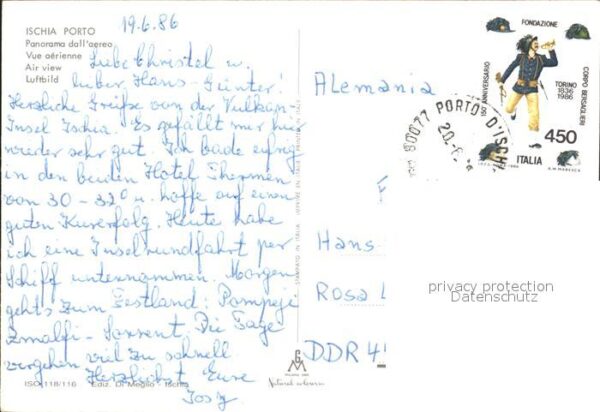 19.6.86
ISCHIA PORTO
Panorama dall'aereo
Vue aérienne
Air view
Luftbild
Liebe Christel u.
lieber Hans-Günter!
Herzliche Grüße von der Vulkan-
Insel Ischia. Es gefällt mir hier
wieder sehr gut. Ich bade eifrig
in den beiden Hotel Thermen
von 30-32° u. hoffe auf einen
guten Kurerfolg. Heute habe
ich eine Inselrundfahrt per
Schiff unternommen. Morgen
gehts zum Festland: Pompeji
Amalfi - Sorrent. Die Tage
vergehen viel zu schnell
Herzlichst Eure
ISO 118/116 Ediz. Di Meglio - Ischia
STAMPATO IN ITALIA
MILANO
Natural colour
Alemania
80077 PORTO D'ISCHIA
20.6.
FONDAZIONE
CORPO BERSAGLIERI
150° ANNIVERSARIO
TORINO
1836
1986
450
ITALIA
Hans
Rosa L
DDR 4
privacy protection
Datenschutz